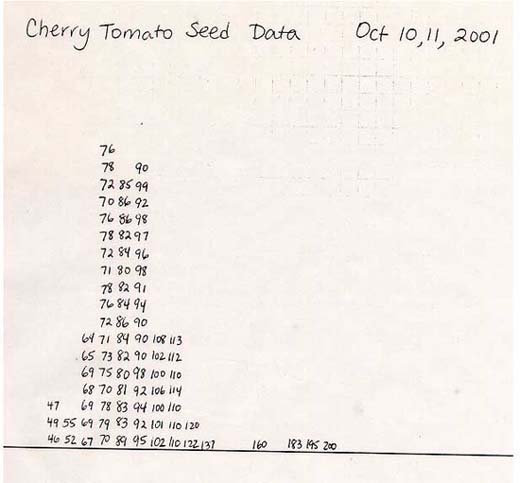 Cherry Tomato Seed Data Oct 10,11, 2001
76
78 90
72 85 99
70 86 92
76 86 98
78 82 97
72 84 96
71 80 98
78 82 91
76 84 94
72 86 90
64 71 84 90 108 113
65 73 82 90 102 112
69 75 80 98 100 110
68 70 81 92 106 114
47 69 78 83 94 100 110
49 55 69 79 83 92 101 110 120
46 52 67 70 89 95 102 110 122 137 160 183 195 200